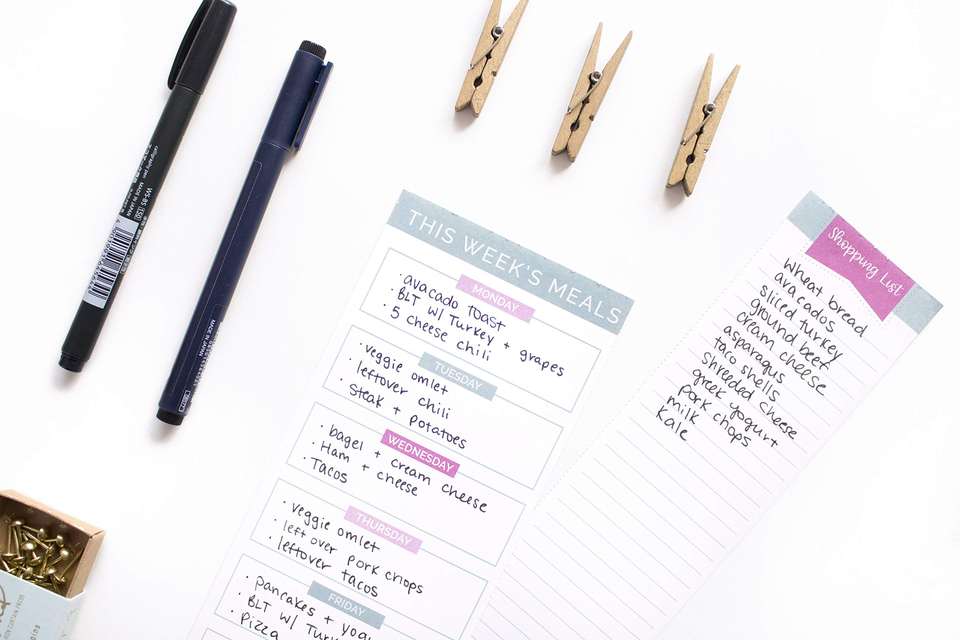 calligraphy pen
WS-BS 150
MADE IN JAPAN
MADE IN JAPAN
THIS WEEK'S MEALS
MONDAY
· avacado toast
· BLT w/ Turkey + grapes
· 5 cheese chili
TUESDAY
· veggie omlet
· leftover chili
· Steak + potatoes
WEDNESDAY
· bagel + cream cheese
· Ham + cheese
· Tacos
THURSDAY
· veggie omlet
· left over pork chops
· leftover tacos
FRIDAY
· pancakes + yogu
· BLT w/ Turk
· Pizza
Shopping List
wheat bread
avacados
sliced turkey
ground beef
cream cheese
asparagus
taco shells
shredded cheese
greek yogurt
pork chops
milk
Kale